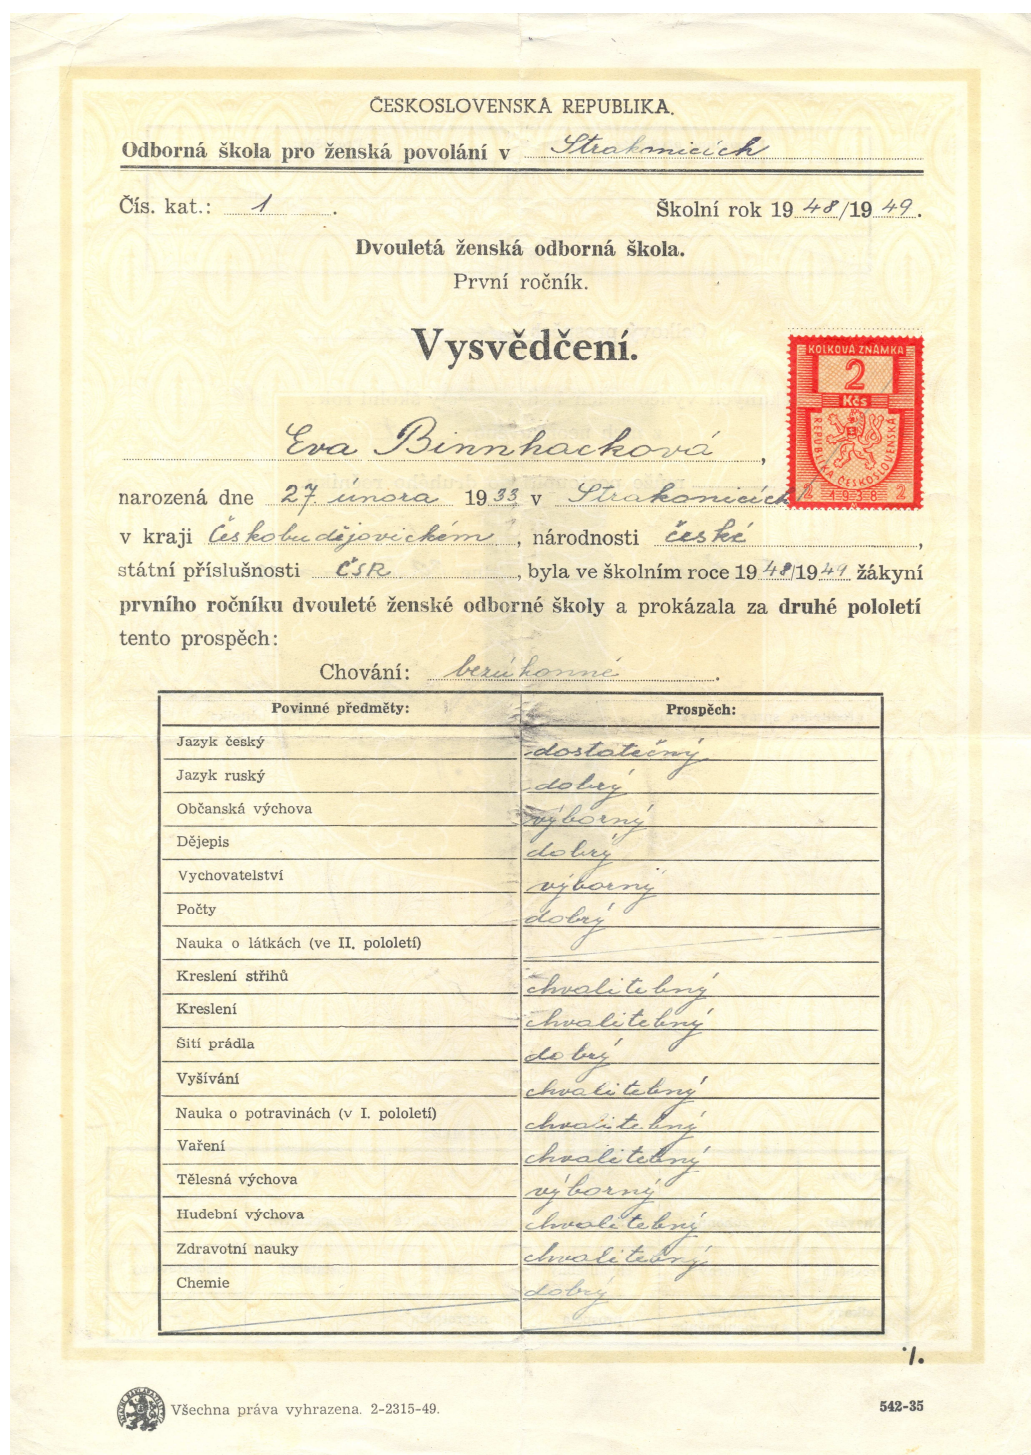 ČESKOSLOVENSKÁ REPUBLIKA.
Odborná škola pro ženská povolání v Strakonicích
Čís. kat.: 1 . Školní rok 1948/1949.
Dvouletá ženská odborná škola.
První ročník.
Vysvědčení.
KOLKOVÁ ZNÁMKA
2
Kčs
REPUBLIKA ČESKOSLOVENSKÁ
2 1938 2
Eva Binnhacková ,
narozená dne 27. února 1933 v Strakonicích
v kraji Českobudějovickém , národnosti české ,
státní příslušnosti ČSR , byla ve školním roce 1948/1949 žákyní
prvního ročníku dvouleté ženské odborné školy a prokázala za druhé pololetí
tento prospěch:
Chování: bezúhonné .
Povinné předměty: Prospěch:
Jazyk český dostatečný
Jazyk ruský dobrý
Občanská výchova výborný
Dějepis dobrý
Vychovatelství výborný
Počty dobrý
Nauka o látkách (ve II. pololetí)
Kreslení střihů chvalitebný
Kreslení chvalitebný
Šití prádla dobrý
Vyšívání chvalitebný
Nauka o potravinách (v I. pololetí) chvalitebný
Vaření chvalitebný
Tělesná výchova výborný
Hudební výchova chvalitebný
Zdravotní nauky chvalitebný
Chemie dobrý
·/.
Všechna práva vyhrazena. 2-2315-49. 542-35